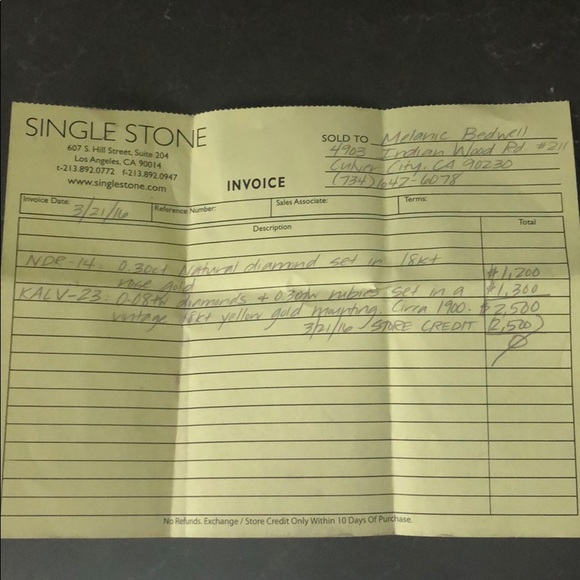 SINGLE STONE
607 S. Hill Street, Suite 204
Los Angeles, CA 90014
t-213.892.0772 f-213.892.0947
www.singlestone.com
INVOICE
SOLD TO Melanie Bedwell
4903 Indian Wood Rd #211
Culver City, CA 90230
(734) 647-6078
Invoice Date: 3/21/16 Reference Number: Sales Associate: Terms:
Description Total
NDR-14: 0.30ct Natural diamond set in 18kt
rose gold $1,200
KALV-23: 0.08tw diamonds + 0.30tw rubies set in a $1,300
vintage 18kt yellow gold mounting. Circa 1900. $2,500
3/21/16 STORE CREDIT (2,500)
0
No Refunds. Exchange / Store Credit Only Within 10 Days Of Purchase.